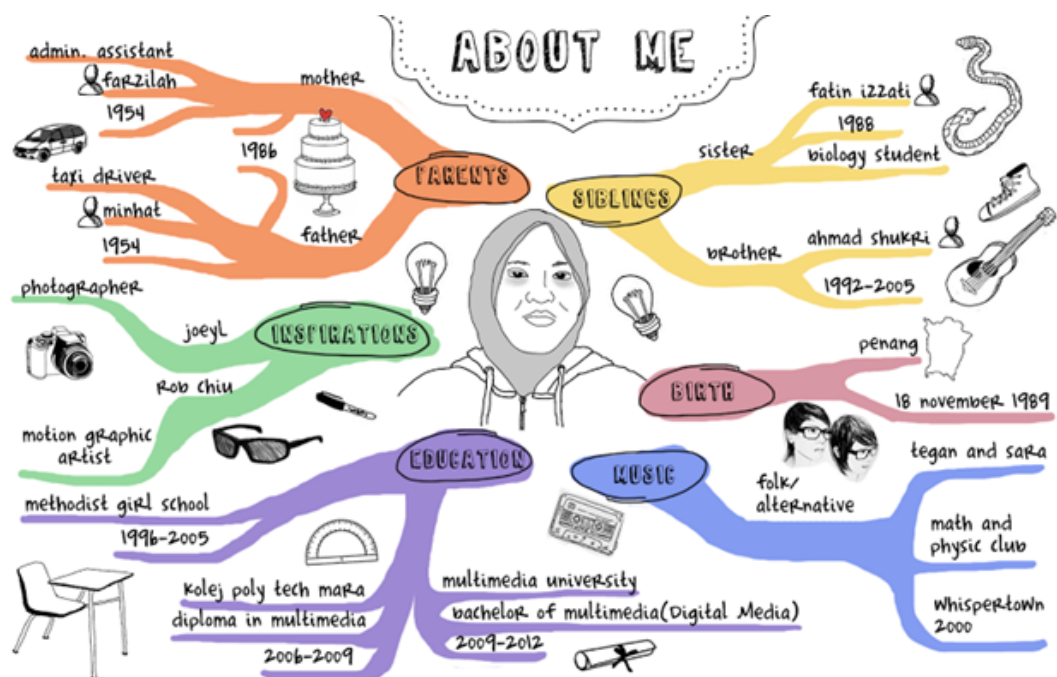 ABOUT ME
admin. assistant
farzilah
1954
mother
1986
taxi driver
minhat
1954
father
PARENTS
fatin izzati
1988
biology student
sister
SIBLINGS
brother
ahmad shukri
1992-2005
photographer
joeyL
INSPIRATIONS
Rob Chiu
motion graphic
artist
penang
BIRTH
18 november 1989
EDUCATION
methodist girl school
1996-2005
kolej poly tech mara
diploma in multimedia
2006-2009
multimedia university
bachelor of multimedia(Digital Media)
2009-2012
MUSIC
folk/
alternative
tegan and sara
math and
physic club
whispertown
2000